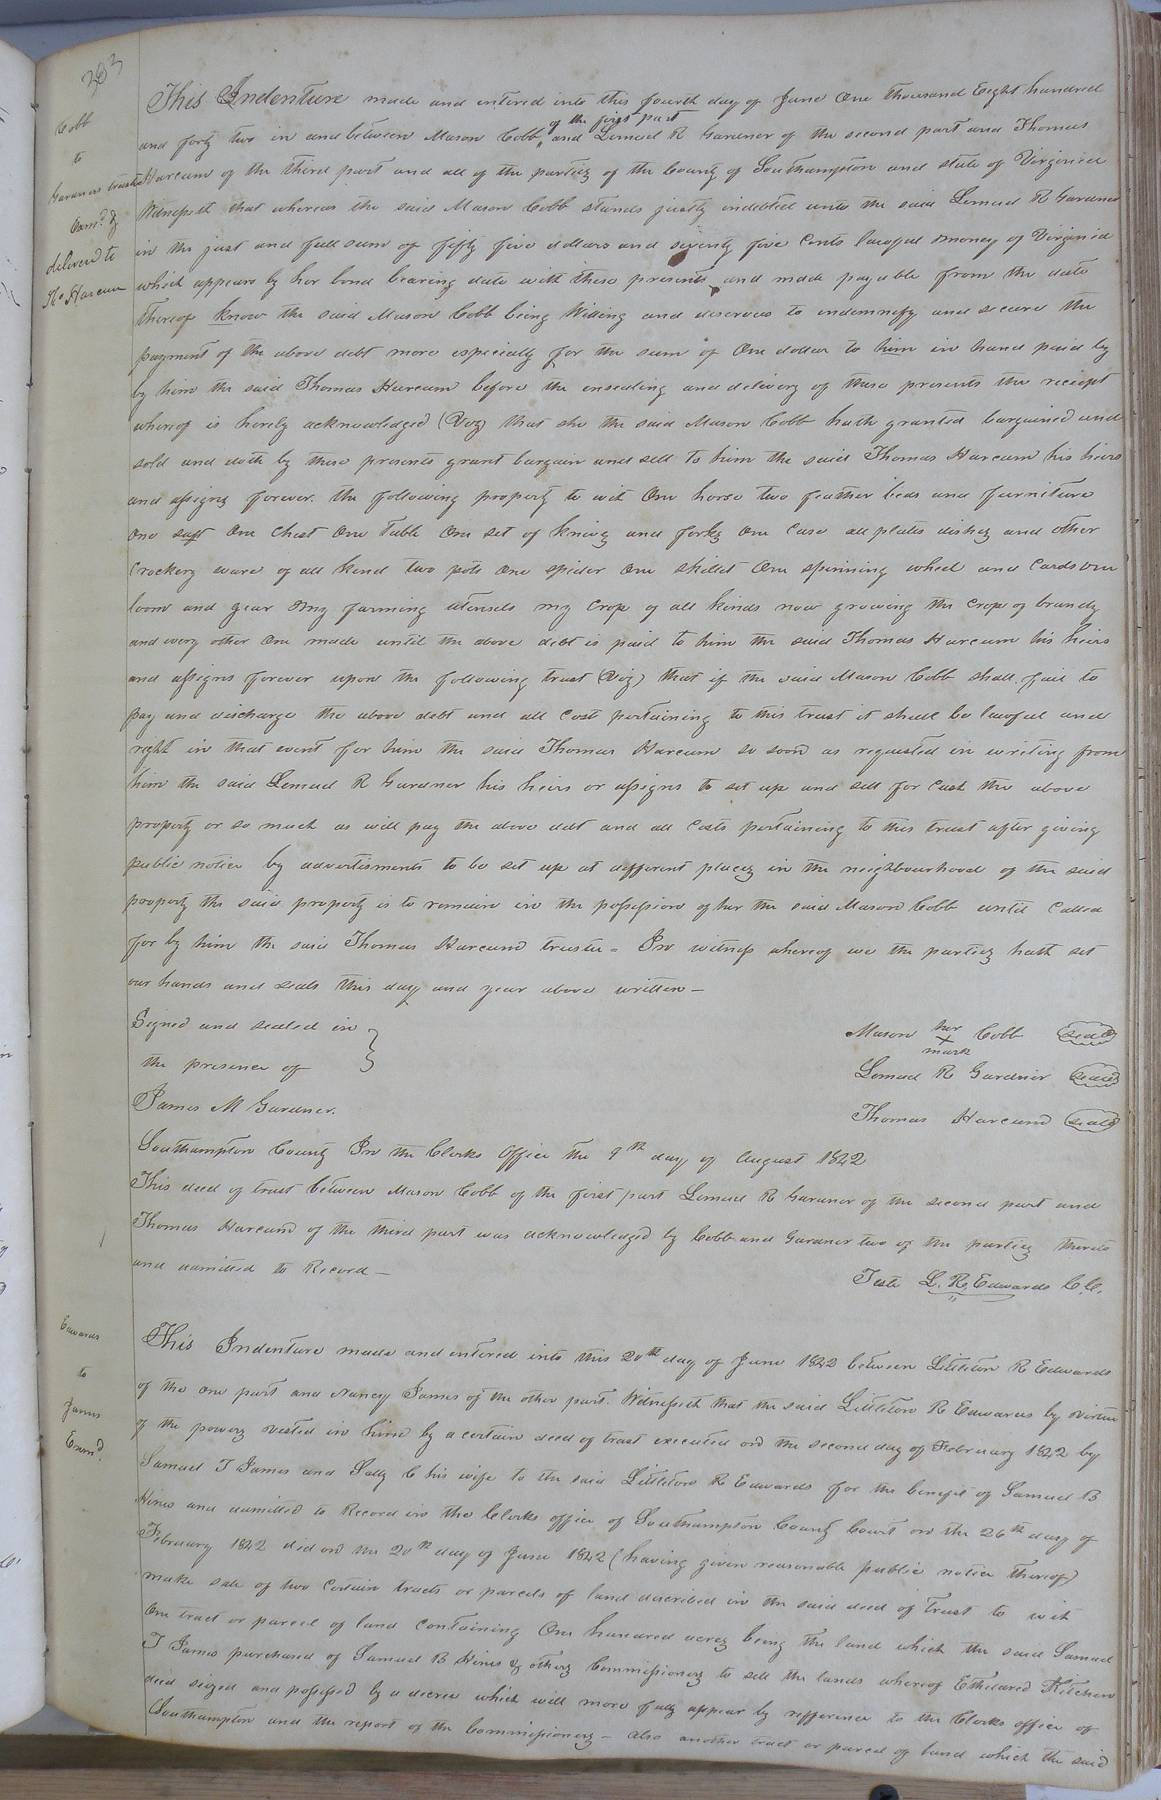 303
Cobb
to
Gardner trustee
Exmd. &
delivered to
Th. Harcum
This Indenture made and entered into this fourth day of June One thousand Eight hundred
and forty two in and between Mason Cobb of the first part and Lemuel R Gardner of the second part and Thomas
Harcum of the third part and all of the partiez of the County of Southampton and state of Virginia
Witnesseth that whereas the said Mason Cobb stands justly indebted unto the said Lemuel R Gardner
in the just and full sum of fifty five dollars and seventy five Cents lawful money of Virginia
which appears by her bond bearing date with these presents and made payable from the date
thereof know the said Mason Cobb being Willing and desirous to indemnify and secure the
payment of the above debt more especially for the sum of One dollar to him in hand paid by
by him the said Thomas Harcum before the ensealing and delivery of these presents the reciept
whereof is hereby acknowledged (Viz) that she the said Mason Cobb hath granted bargained and
sold and doth by these presents grant bargain and sell to him the said Thomas Harcum his heirs
and assigns forever. the following property to wit One horse two feather beds and furniture
One One Chest One Table One set of knives and forks One Case all plates dishez and other
Crockery ware of all kind two pots One spider One skillet One spinning wheel and Cards One
loom and gear my farming utensels my Crop of all kinds now growing the Crop of brandy
and every other One made until the above debt is paid to him the said Thomas Harcum his heirs
and assigns forever upon the following trust (Viz) that if the said Mason Cobb shall fail to
pay and discharge the above debt and all Cost pertaining to this trust it shall be lawful and
right in that event for him the said Thomas Harcum so soon as requested in writing from
him the said Lemuel R Gardner his heirs or assigns to set up and sell for Cash the above
property or so much as will pay the above debt and all Costs pertaining to this trust after giving
public notice by advertisments to be set up at different placez in the neighbourhood of the said
property the said property is to remain in the possession of her the said Mason Cobb until Called
for by him the said Thomas Harcum trustee = In witness whereof we the partiez hath set
our hands and seals this day and year above written —
Signed and sealed in
the presence of
James M Gardner.
Mason her Cobb seal
X
mark
Lemuel R Gardner seal
Thomas Harcum seal
Southampton County In the Clerks Office the 9th day of August 1842
This deed of trust between Mason Cobb of the first part Lemuel R Gardner of the second part and
Thomas Harcum of the third part was acknowledged by Cobb and Gardner two of the partiez thereto
and admitted to Record —
Teste L. R. Edwards C.C.
Edwards
to
James
Exmd.
This Indenture made and entered into this 20th day of June 1842 between Littleton R Edwards
of the One part and Nancy James of the other part. Witnesseth that the said Littleton R Edwards by virtue
of the powerz vested in him by a certain deed of trust executed on the second day of February 1842 by
Samuel T James and Sally C his wife to the said Littleton R Edwards for the benefit of Samuel B
Hines and admitted to Record in the Clerks office of Southampton County Court on the 26th day of
February 1842 did on the 20th day of June 1842 (having given reasonable public notice thereof)
make sale of two Certain tracts or parcels of land described in the said deed of trust to wit
One tract or parcel of land Containing One hundred acrez being the land which the said Samuel
T James purchased of Samuel B Hines & otherz Commissionerz to sell the lands whereof Etheldred Kitchen
died seized and possessed by a decree which will more fully appear by refference to the Clerks office of
Southampton and the report of the Commissionerz — also another tract or parcel of land which the said